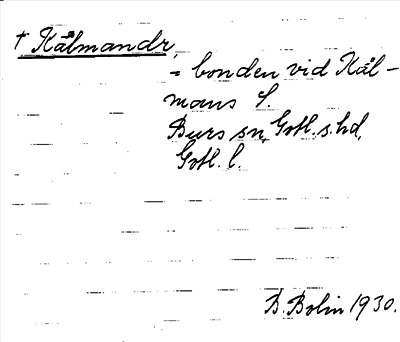 † Kålmandr,
= bonden vid Kål-
mans S.
Burs sn, Gotl. s. hd,
Gotl. l.
B. Bolin 1930.